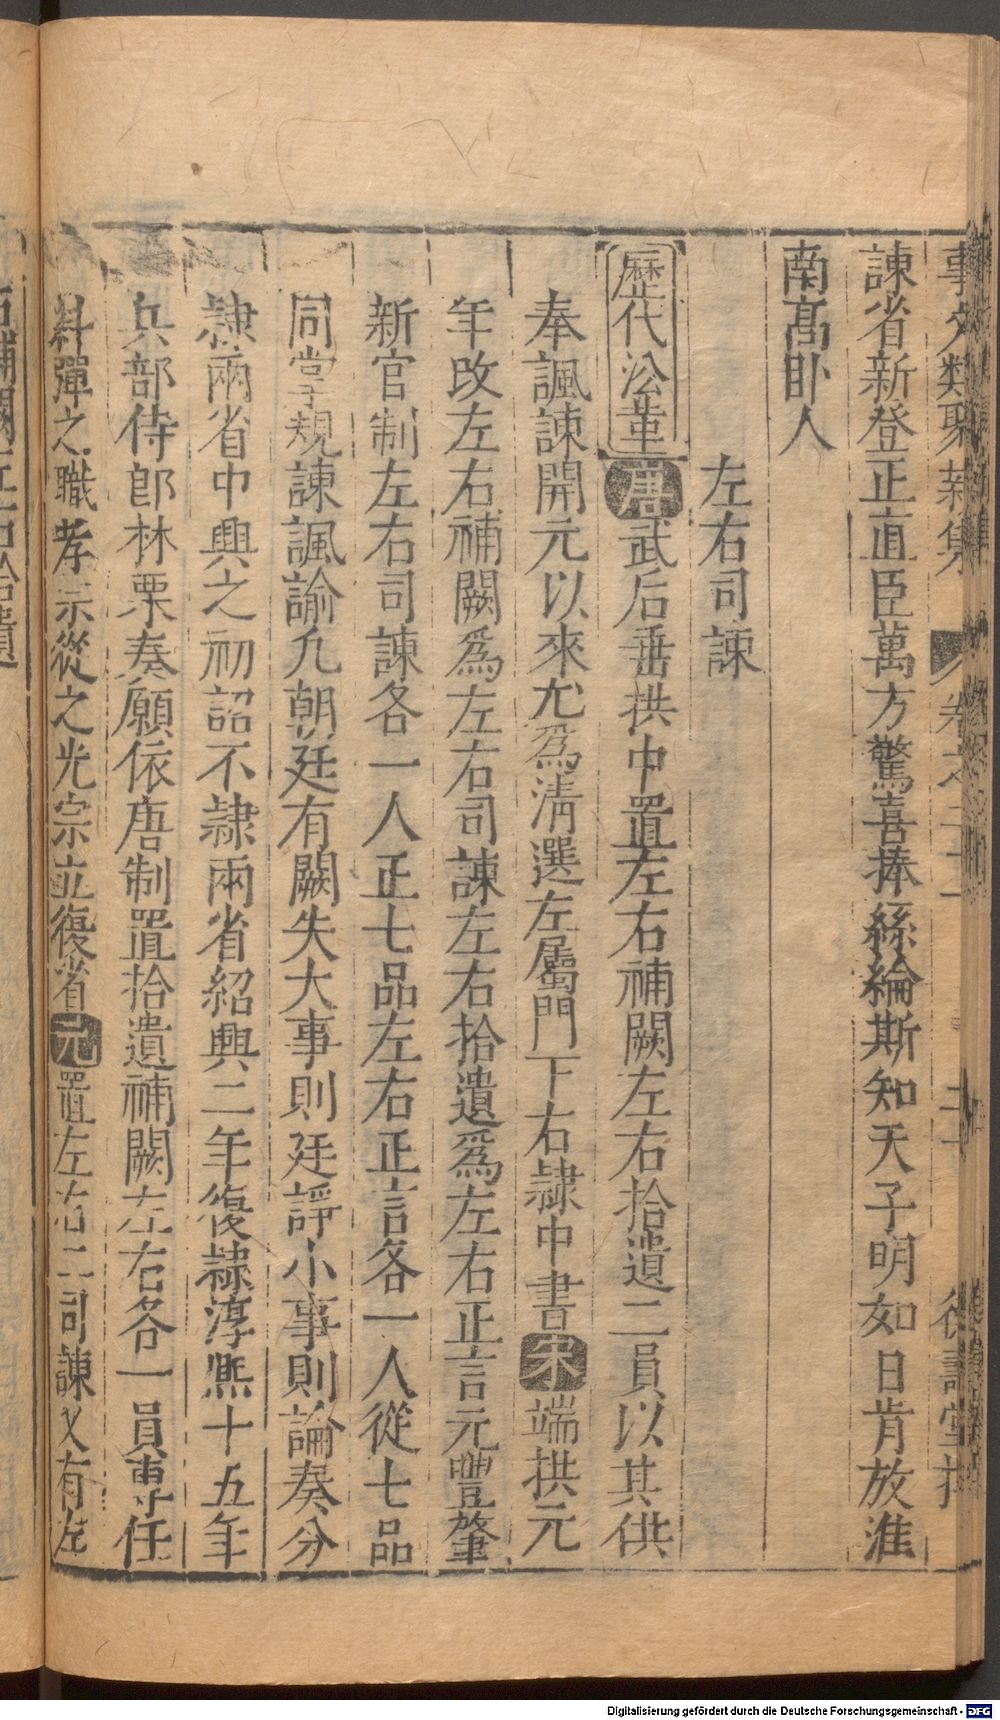 事文類聚新集 卷之二十
諫省新登正直臣萬方驚喜捧絲綸斯知天子明如日肯放淮
南高臥人
左右司諫
歷代沿革 唐武后垂拱中置左右補闕左右拾遺二員以其供
奉諷諫開元以來尤爲淸選左屬門下右隸中書宋端拱元
年改左右補闕爲左右司諫左右拾遺爲左右正言元豐肇
新官制左右司諫各一人正七品左右正言各一人從七品
同掌規諫諷諭凡朝廷有闕失大事則廷諍小事則論奏分
隸兩省中興之初詔不隸兩省紹興二年復隸淳熙十五年
兵部侍郎林栗奏願依唐制置拾遺補闕左右各一員專任
糾彈之職孝宗從之光宗立復省元置左右二司諫又有左
Digitalisierung gefördert durch die Deutsche Forschungsgemeinschaft - DFG